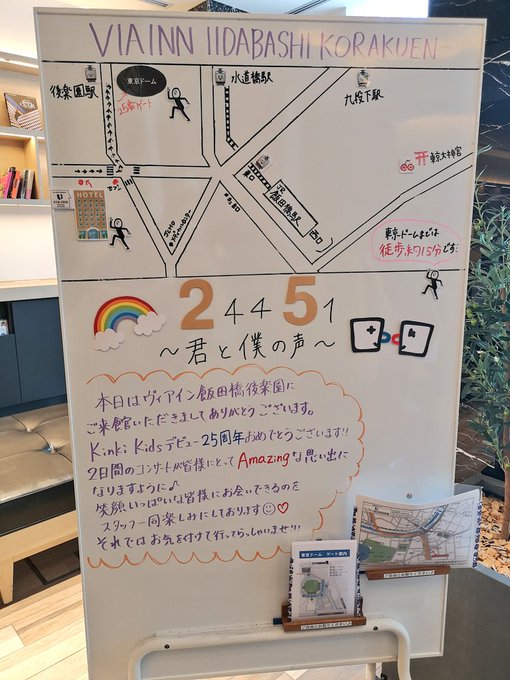 VIAINN IIDABASHI KORAKUEN
後楽園駅
東京ドーム
水道橋駅
九段下駅
25番ゲート
東京大神宮
東口
JR
飯田橋駅
西口
VIA INN
HOTEL
東京ドームまでは
徒歩約15分です。
24451
~君と僕の声~
本日はヴィアイン飯田橋後楽園に
ご来館いただきましてありがとうございます。
Kinki Kids デビュー25周年おめでとうございます!!
2日間のコンサートが皆様にとってAmazingな思い出に
なりますように♪
笑顔いっぱいな皆様にお会いできるのを
スタッフ一同楽しみにしております☺♡
それではお気を付けて行ってらっしゃいませ!!!
東京ドーム ゲート案内
ご自由にお取りください♪
ご自由にお取りください♪